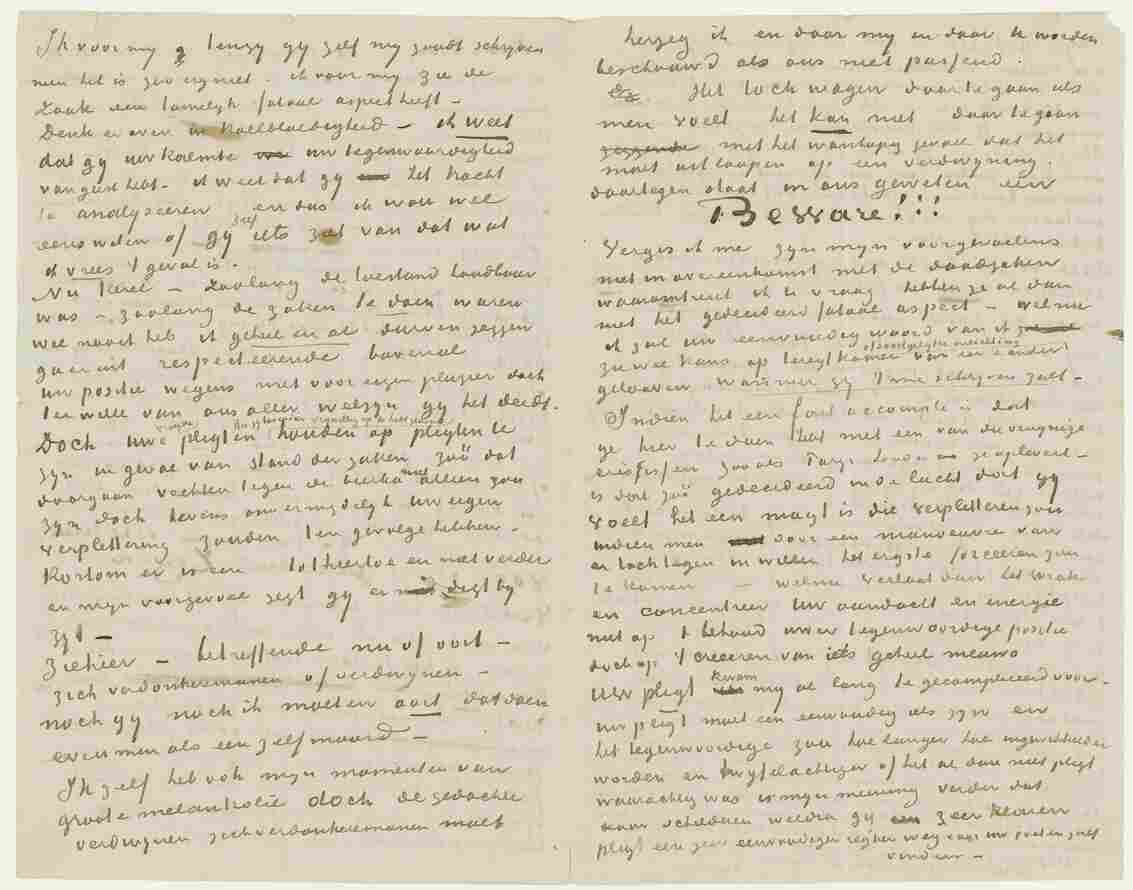 Ik voor my tenzy gy zelf my zoudt schryven
neen het is zoo erg niet. ik voor my zie de
zaak een tamelyk fataal aspect heeft –
Denk er over in koelbloedigheid – ik weet
dat gy uw kalmte uw tegenwoordigheid
van geest hebt – ik weet dat gy het tracht
te analyseeren en dus ik wou wel
eens weten of gy zelf iets ziet van dat wat
ik vrees 't geval is.
Nu kerel – zoolang de toestand houdbaar
was – zoolang de zaken te doen waren
wel nooit heb ik geheel en al durven zeggen
ga er uit respecteerende bovenal
uw positie wegens niet voor eigen plezier doch
ten wille van ons aller welzyn gy het deedt.
Doch uwe pligten houden op pligten te
zyn in geval van stand der zaken zóó dat
doorgaan vechten tegen de bierka niet alleen zou
zyn doch tevens onvermydelyk uw eigen
verplettering zouden ten gevolge hebben –
Kortom er is een tot hiertoe en niet verder
en myn voorgevoel zegt gy er digt by
zyt –
Ziehier – betreffende nu of ooit –
zich verdonkeremanen of verdwynen –
noch gy noch ik moeten ooit dat doen
evenmin als een zelfmoord –
Ik zelf heb ook myn momenten van
groote melankolie doch de gedachte
verdwynen zich verdonkeremanen moet
herzeg ik en door my en door U worden
beschouwd als ons niet passend.
Het toch wagen door te gaan als
men voelt het kan niet door te gaan
met het wanhopig gevoel dat het
moet uitloopen op een verdwyning.
daartegen staat in ons geweten een
Beware!!!
Vergis ik me zyn myn voorgevoelens
niet in overeenkomst met de daadzaken
waaromtrent ik U vraag hebben ze al dan
niet het gedecideerd fatale aspect – welnu
ik zal uw eenvoudig woord van ik
zie wel kans op teregtkomen of
gelooven wanneer gy 't me schryven zult –
Indien het een fait accompli is dat
ge hier te doen hebt met een van die vreemde
crisissen zooals Parys Londen ze oplevert –
is dat zóó gedecideerd in de lucht dat gy
voelt het een magt is die verpletteren zou
indien men door een manoeuvre van
er toch tegen in willen het ergste forceeren zou
te komen – welnu verlaat dan het wrak
en concentreer uw aandacht en energie
niet op 't behoud uwer tegenwoordige positie
doch op 't creeeren van iets geheel nieuws
Uw pligt kwam my al lang te gecompliceerd voor –
uw pligt moet een eenvoudig als zyn en
het tegenwoordige zou hoe langer hoe ingewikkelder
worden en twyfelachtiger of het al dan niet pligt
waarachtig was is myn meening verder dat
aan schilderen weldra gy zeer
pligt een zeer eenvoudigen regten weg voor uw voeten zelf
verder –